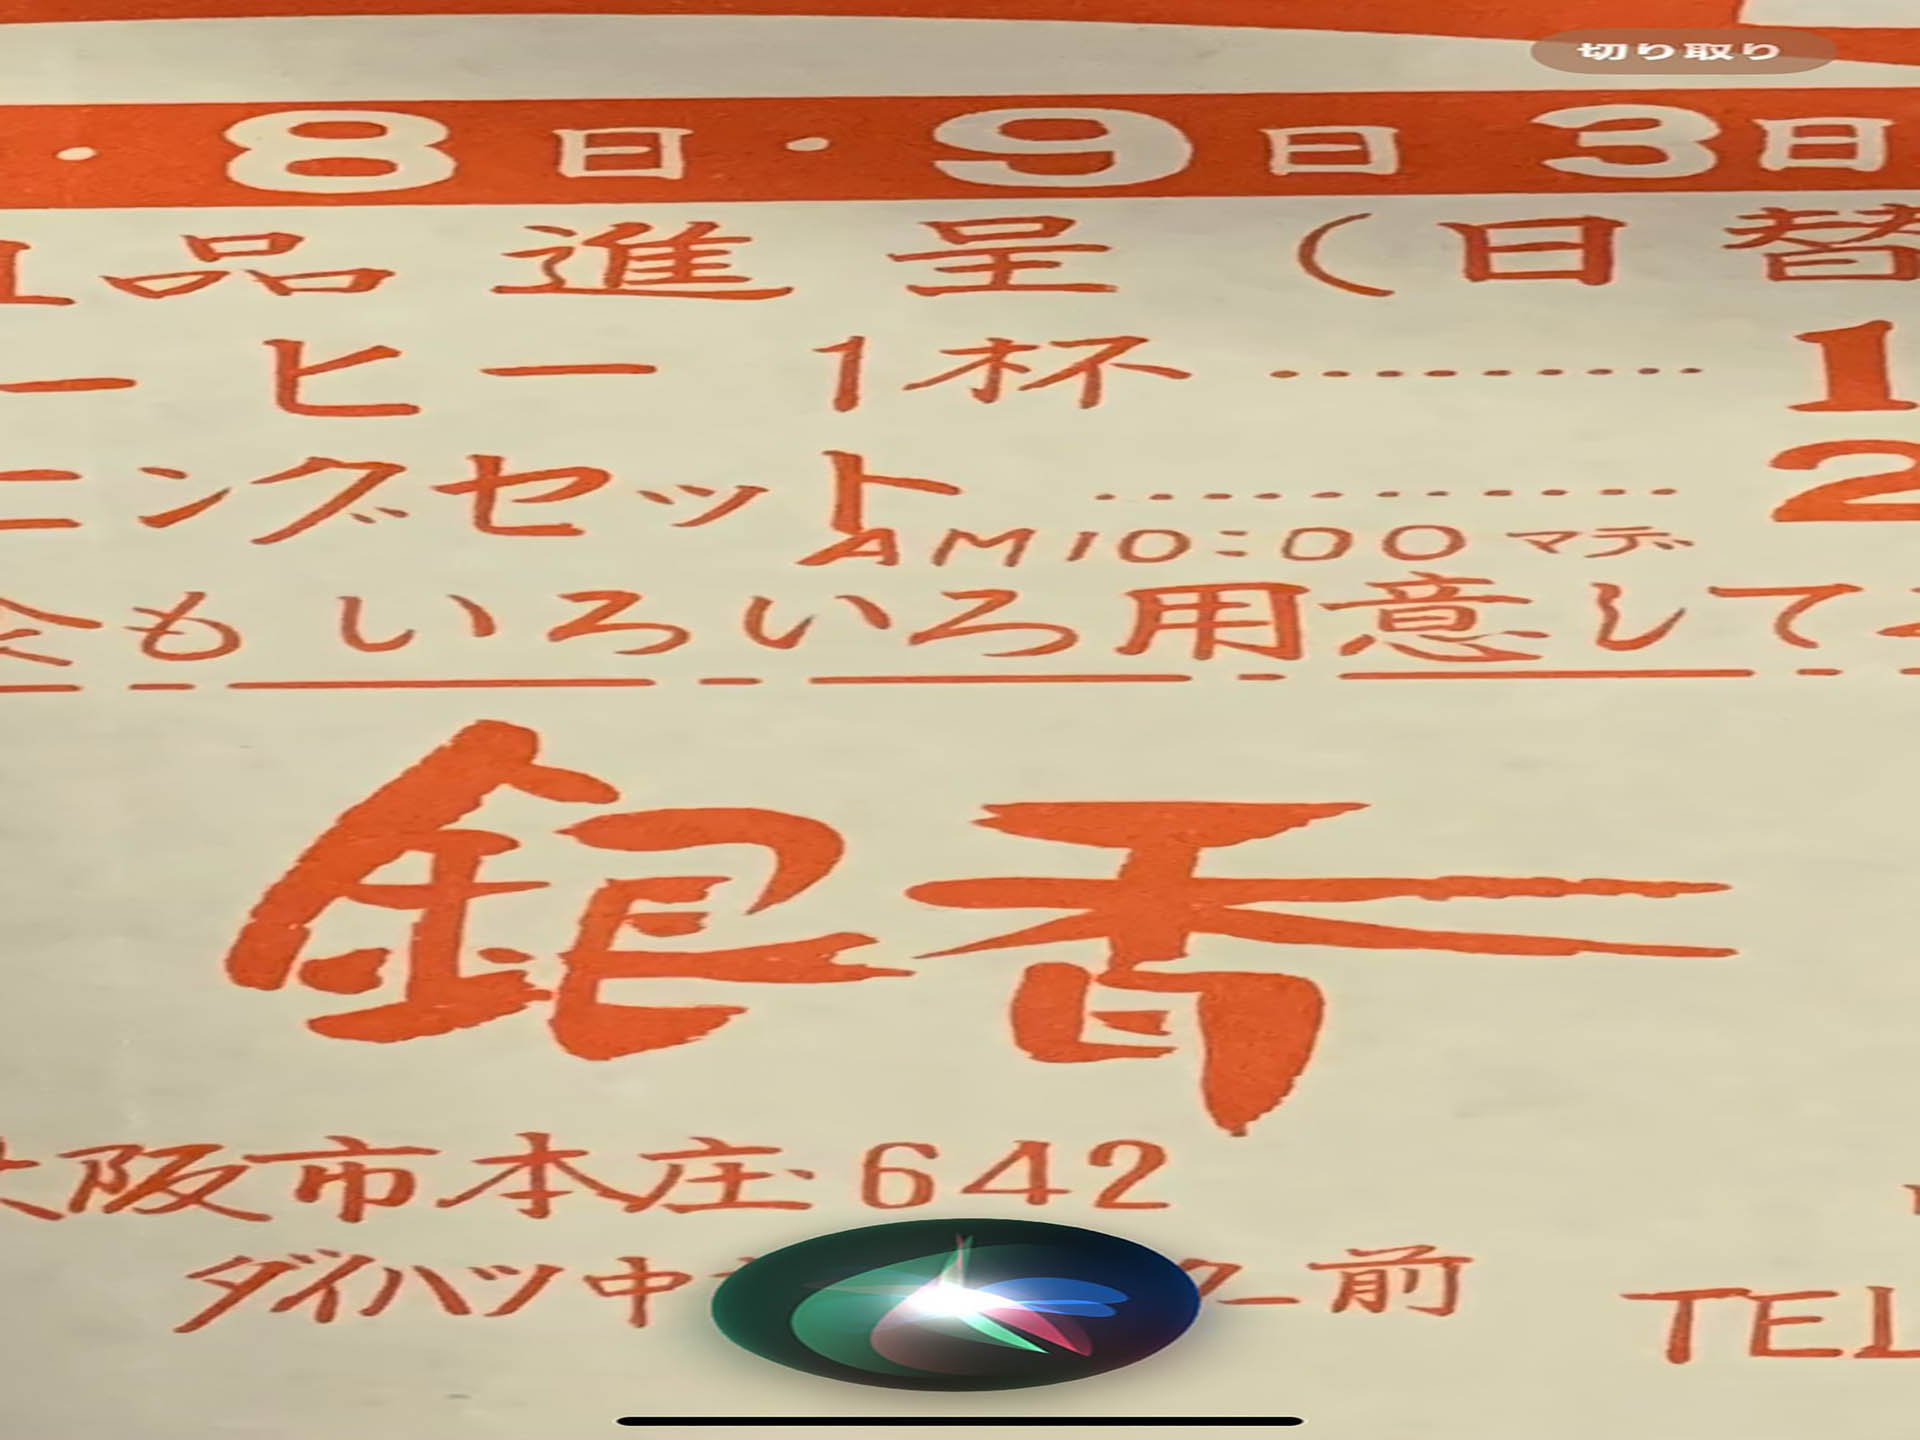 切り取り
・8日・9日 3日
品進呈(日替
ーヒー 1杯…………1
ニングセット…………2
AM10:00マデ
会もいろいろ用意して
銀香
大阪市本庄642
ダイハツ中 ター前
TEL